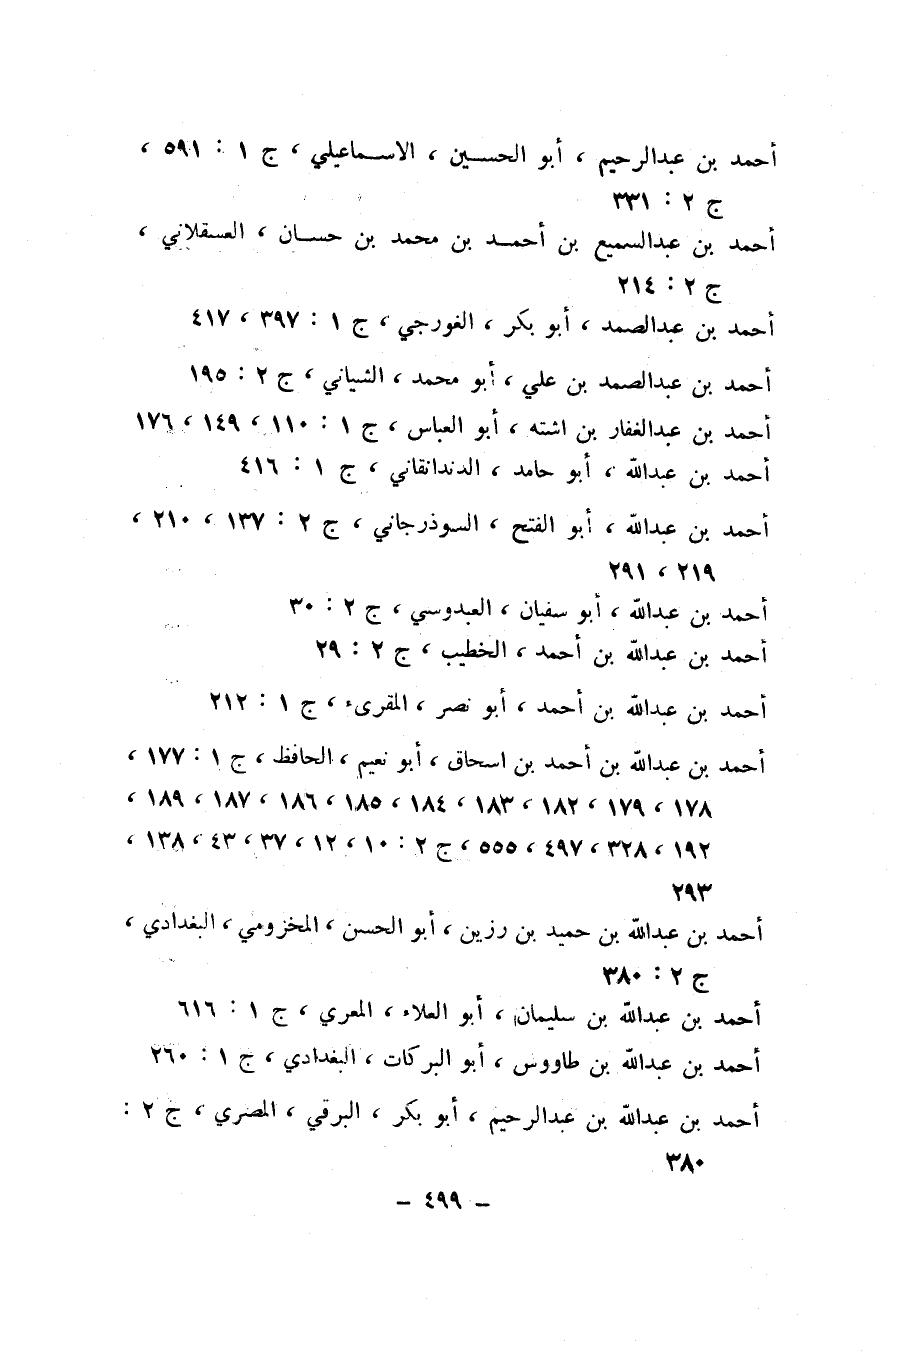 أحمد بن عبدالرحيم ، أبو الحسين ، الاسماعيلي ، ج ١ : ٥٩١ ،
ج ٢ : ٣٣١
أحمد بن عبدالسميع بن أحمد بن محمد بن حسان ، العسقلاني ،
ج ٢ : ٢١٤
أحمد بن عبدالصمد ، أبو بكر ، الغورجي ، ج ١ : ٣٩٧ ، ٤١٧
أحمد بن عبدالصمد بن علي ، أبو محمد ، الشياني ، ج ٢ : ١٩٥
أحمد بن عبدالغفار بن اشته ، أبو العباس ، ج ١ : ١١٠ ، ١٤٩ ، ١٧٦
أحمد بن عبدالله ، أبو حامد ، الدندانقاني ، ج ١ : ٤١٦
أحمد بن عبدالله ، أبو الفتح ، السوذرجاني ، ج ٢ : ١٣٧ ، ٢١٠ ،
٢١٩ ، ٢٩١
أحمد بن عبدالله ، أبو سفيان ، العبدوسي ، ج ٢ : ٣٠
أحمد بن عبدالله بن أحمد ، الخطيب ، ج ٢ : ٢٩
أحمد بن عبدالله بن أحمد ، أبو نصر ، المقرىء ، ج ١ : ٢١٢
أحمد بن عبدالله بن أحمد بن اسحاق ، أبو نعيم ، الحافظ ، ج ١ : ١٧٧ ،
١٧٨ ، ١٧٩ ، ١٨٢ ، ١٨٣ ، ١٨٤ ، ١٨٥ ، ١٨٦ ، ١٨٧ ، ١٨٩ ،
١٩٢ ، ٣٢٨ ، ٤٩٧ ، ٥٥٥ ، ج ٢ : ١٠ ، ١٢ ، ٣٧ ، ٤٣ ، ١٣٨ ،
٢٩٣
أحمد بن عبدالله بن حميد بن رزين ، أبو الحسن ، المخزومي ، البغدادي ،
ج ٢ : ٣٨٠
أحمد بن عبدالله بن سليمان ، أبو العلاء ، المعري ، ج ١ : ٦١٦
أحمد بن عبدالله بن طاووس ، أبو البركات ، البغدادي ، ج ١ : ٢٦٠
أحمد بن عبدالله بن عبدالرحيم ، أبو بكر ، البرقي ، المصري ، ج ٢ :
٣٨٠
– ٤٩٩ –